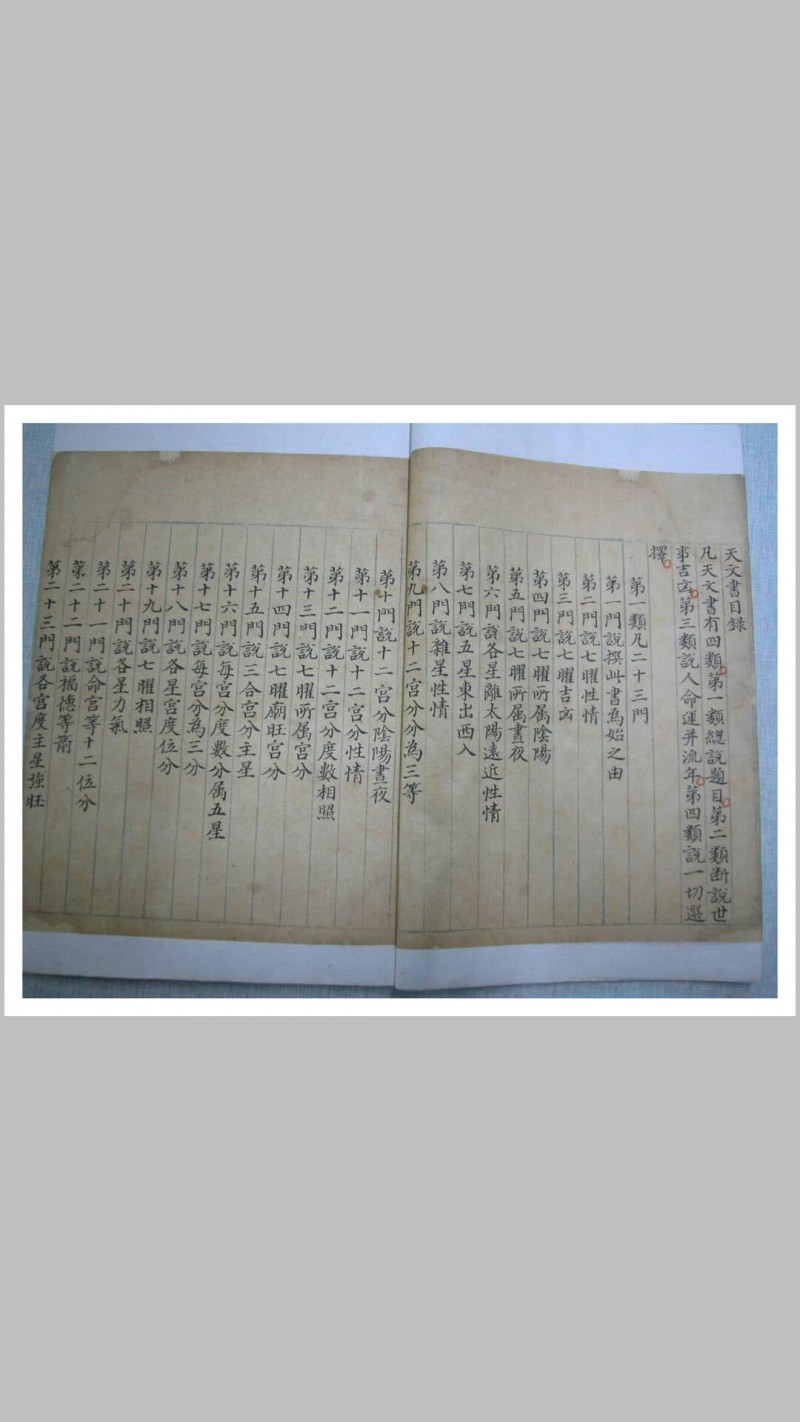 天文書目録
凡天文書有四類第一類緫說題目第二類断說世
事吉凶第三類說人命運并流年第四類說一切選
擇
第一類凡二十三門
第一門說撰此書為始之由
第二門說七曜性情
第三門說七曜吉凶
第四門說七曜所属陰陽
第五門說七曜所属晝夜
第六門說各星離太陽遠近性情
第七門說五星東出西入
第八門說雜星性情
第九門說十二宫分分為三等
第十門說十二宫分陰陽晝夜
第十一門說十二宫分性情
第十二門說十二宫分度數相照
第十三門說七曜所属宫分
第十四門說七曜廟旺宫分
第十五門說三合宫分主星
第十六門說每宫分度數分属五星
第十七門說每宫分為三分
第十八門說各星宫度位分
第十九門說七曜相照
第二十門說各星力氣
第二十一門說命宫等十二位分
第二十二門說福德等箭
第二十三門說各宫度主星強旺